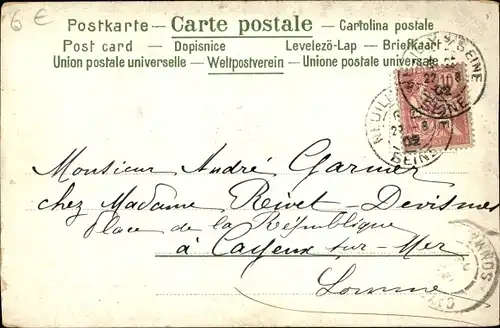 6 €
Postkarte — Carte postale — Cartolina postale
Post card — Dopisnice Levelezö-Lap — Briefkaart
Union postale universelle — Weltpostverein — Unione postale universale
10
NEUILLY S/SEINE
SEINE
Monsieur André Garnier
chez Madame Reivet-Devismes
Place de la République
à Cayeux sur-Mer
Somme